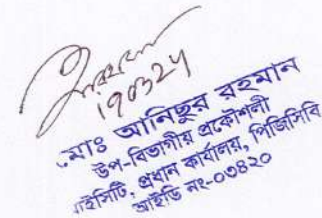 190324
মোঃ আনিছুর রহমান
উপ-বিভাগীয় প্রকৌশলী
আইসিটি, প্রধান কার্যালয়, পিজিসিবি
আইডি নং-০৩৪২০